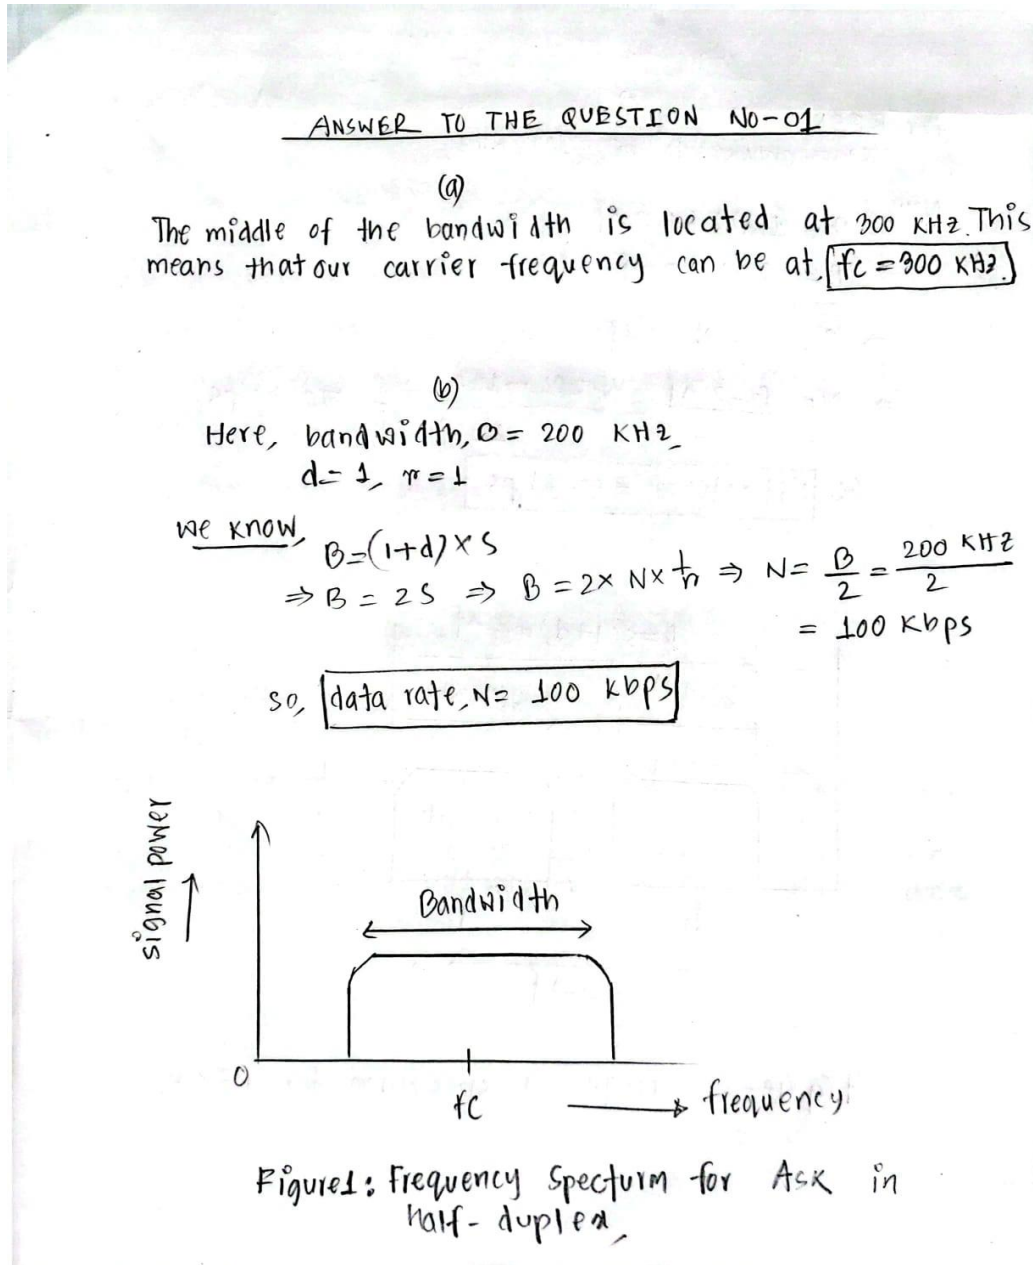 ANSWER TO THE QUESTION NO-01
(a)
The middle of the bandwidth is located at 300 KHz. This
means that our carrier frequency can be at, fc = 300 KHz.
(b)
Here, bandwidth, B = 200 KHz
d = 1, r = 1
we know,
B = (1+d) × S
⇒ B = 2S ⇒ B = 2 × N × 1/r ⇒ N = B/2 = 200 KHZ/2
= 100 Kbps
so, data rate, N = 100 kbps
signal power
Bandwidth
0
fc
frequency
Figure1: Frequency Specturm for ASK in
half-duplex